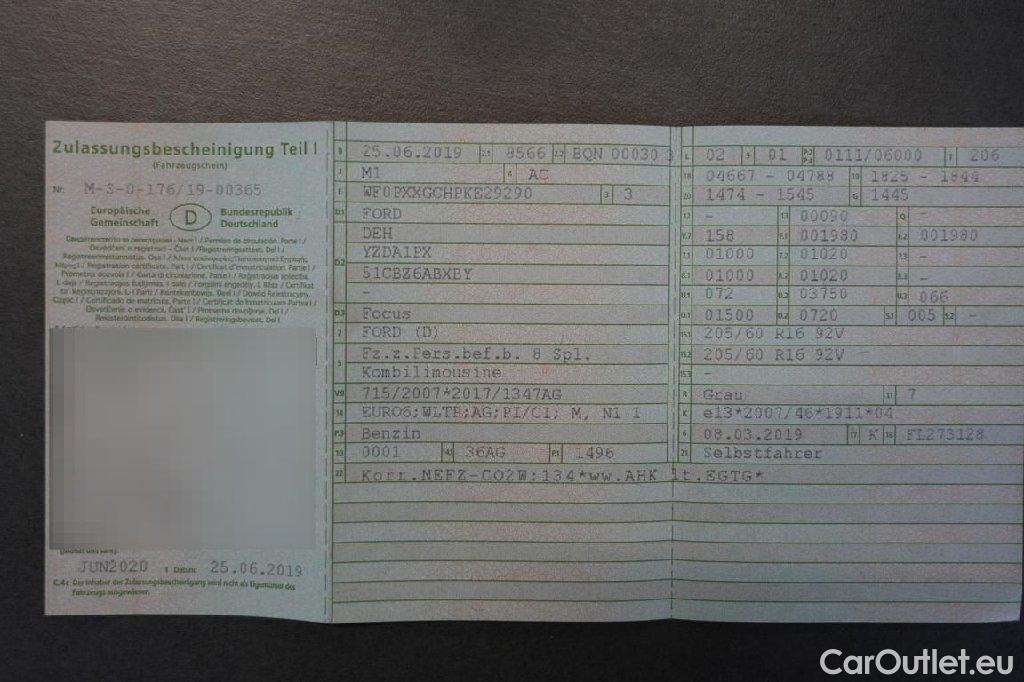 Zulassungsbescheinigung Teil I
(Fahrzeugschein)
Nr. M-S-0-176/19-00365
Europäische Gemeinschaft
D
Bundesrepublik Deutschland
JUN2020 I Datum: 25.06.2019
C.4c Der Inhaber der Zulassungsbescheinigung wird nicht als Eigentümer des
Fahrzeugs ausgewiesen.
B 25.06.2019 2.1 8566 2.2 BQN 00030 3
J M1 4 AC
E WF0PXXGCHPKE29290 3 3
D.1 FORD
DEH
D.2 YZDA1PX
51CBZ6ABXBY
-
D.3 Focus
2 FORD (D)
5 Fz.z.Pers.bef.b. 8 Spl.
Kombilimousine
V.9 715/2007*2017/1347AG
14 EURO6;WLTP;AG;PI/CI; M, N1 I
P.3 Benzin
10 0001 14.1 36AG P.1 1496
22 Korr.NEFZ-CO2W:134*ww.AHK lt.EGTG*
L 02 9 01 P.2 P.4 0111/06000 T 206
18 04667 - 04788 19 1825 - 1844
20 1474 - 1545 G 1445
12 - 13 00090 Q -
V.7 158 F.1 001980 F.2 001980
7.1 01000 7.2 01020 7.3 -
8.1 01000 8.2 01020 8.3 -
U.1 072 U.2 03750 U.3 066
O.1 01500 O.2 0720 S.1 005 S.2 -
15.1 205/60 R16 92V
15.2 205/60 R16 92V
15.3 -
R Grau 11 7
K e13*2007/46*1911*04
6 08.03.2019 17 K 16 FL273128
21 Selbstfahrer
CarOutlet.eu